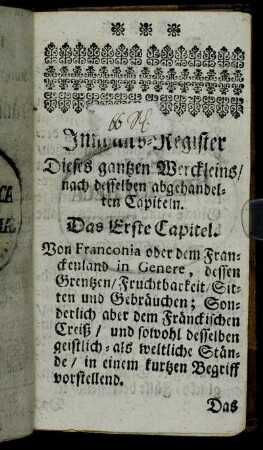 66 
Inhalts-Register
Dieses gantzen Werckleins/
nach desselben abgehandel-
ten Capiteln.
Das Erste Capitel.
Von Franconia oder dem Fran-
ckenland in Genere, dessen
Grentzen/ Fruchtbarkeit/ Sit-
ten und Gebräuchen; Son-
derlich aber dem Fränckischen
Creiß/ und sowohl desselben
geistlich- als weltliche Stän-
de/ in einem kurtzen Begriff
vorstellend.
Das